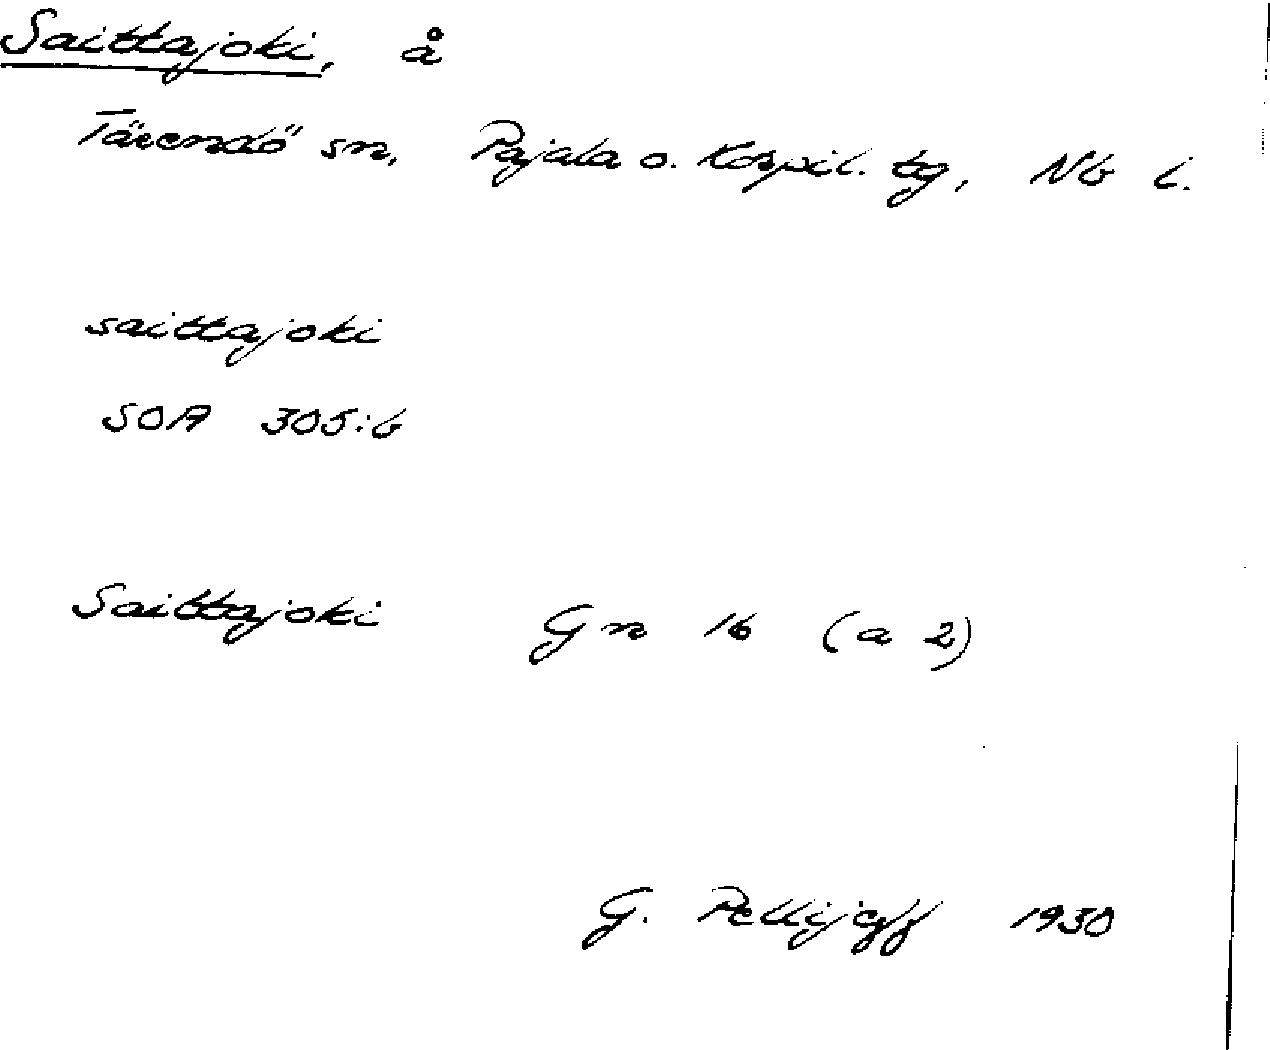 Saittajoki, å
Tärendö sn, Pajala o. Korpil. tg, Nb l.
saittajoki
SOA 305:6
Saittajoki Gn 16 (a 2)
G. Pellijeff 1930